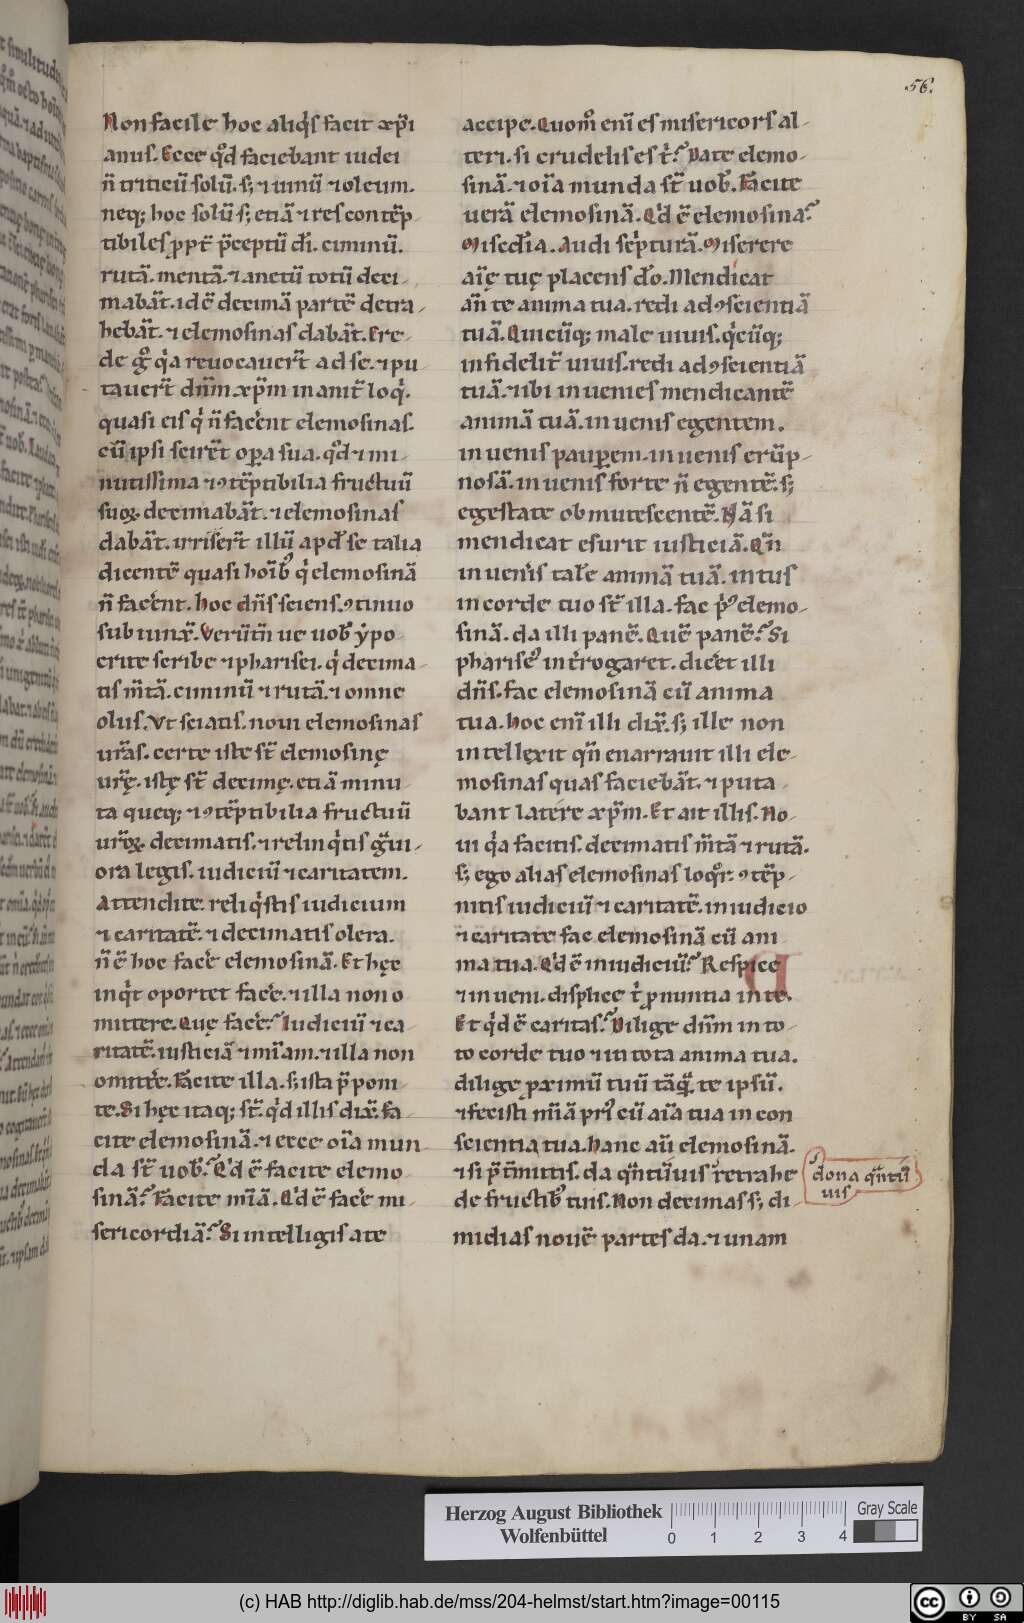 56.
Non facile hoc aliq͛s facit xp̄i
anus. Ecce qd̊ faciebant iudei
n̄ triticū solū. s; ⁊ uinū ⁊ oleum.
neq; hoc solū s; etiā ⁊ res contēp
tibiles ꝓpt̄ p̄ceptū dī. ciminū.
rutā. mentā. ⁊ anetū totū deci
mabāt. id ē decimā partē detra
hebāt. ⁊ elemosinas dabāt. Cre
de gͦ q͛a reuocauer̄t ad se. ⁊ pu
tauer̄t dn̄m xp̄m inanit̄ loq͛.
quasi eis q͛ n̄ facer̄ent elemosinas.
cū ipsi scirēt oꝑa sua. qd̊ ⁊ mi
nutissima ⁊ ꝯtēptibilia fructuū
suoꝝ decimabāt. ⁊ elemosinas
dabāt. irriser̄t illū apd̄ se talia
dicentē quasi hoīb᷒ q͛ elemosinā
n̄ facer̄ent. hoc dn̄s sciens. ꝯtinuo
subiunx̄. Verūtn̄ ue uob᷒ ypo
crite scribe ⁊ pharisei. q͛ decima
tis m̄tā. ciminū ⁊ rutā. ⁊ omne
olus. Vt sciatis. noui elemosinas
ur̄as. certe iste st̄ elemosinę
ur̄ę. istę st̄ decimę. etiā minu
ta queq; ⁊ ꝯtēptibilia fructuū
ur̄oꝝ decimatis. ⁊ relinq͛tis gͣui
ora legis. iudiciū ⁊ caritatem.
Attendite. reliq͛stis iudicium
⁊ caritatē. ⁊ decimatis olera.
n̄ ē hoc facer̄e elemosinā. Et hęc
inq͛t oportet facer̄e. ⁊ illa non o
mittere. Quę facer̄e? Iudiciū ⁊ ca
ritatē. iusticiā ⁊ mīam. ⁊ illa non
omitter̄e. Facite illa. s; ista p̄poni
te. Si hęc itaq; st̄. q͛d illis dix̄. fa
cite elemosinā. ⁊ ecce oīa mun
da st̄ uob᷒? Q͛d ē facite elemo
sinā? Facite mīā. Q͛d ē facer̄e mi
sericordiā? Si intelligis a te
accipe. Quom̊ enī es misericors al
teri. si crudelis es t͛? Date elemo
sinā. ⁊ oīa munda st̄ uob᷒. Facite
uerā elemosinā. Q͛d ē elemosina?
Misc̄dia. Audi scͥpturā. Miserere
aīę tuę placens dō. Mendicat
an̄ te anima tua. redi ad ꝯscientiā
tuā. Quicūq; male uiuis. q͛cūq;
infidelit̄ uiuis. redi ad ꝯscientiā
tuā. ⁊ ibi inuenies mendicantē
animā tuā. inuenis egentem.
inuenis pauꝑem. inuenis erūp
nosā. inuenis forte n̄ egentē. s;
egestate obmutescentē. Nā si
mendicat esurit iusticiā. Qn̄
inueneris tal̄e animā tuā. intus
in corde tuo st̄ illa. fac p͛᷒ elemo
sinā. da illi panē. Quē panē? Si
phariseꝰ int̄rogaret. dicer̄et illi
dn̄s. fac elemosinā cū anima
tua. hoc enī illi dix̄. s; ille non
intellexit qn̄ enarrauit illi ele
mosinas quas faciebāt. ⁊ puta
bant latere xp̄m. Et ait illis. No
ui q͛a facitis. decimatis m̄tā ⁊ rutā.
s; ego alias elemosinas loqͦr. ꝯtēp
nitis iudiciū ⁊ caritatē. in iudicio
⁊ caritate fac elemosinā cū ani
ma tua. Q͛d ē in iudiciū? Respice
⁊ inueni. displice t͛ ꝓnuntia in te.
Et q͛d ē caritas? Dilige dn̄m in to
to corde tuo ⁊ in tota anima tua.
dilige ꝓximū tuū tāqͣ te ipsū.
⁊ fecisti mīā pͥᷤ cū aīa tua in con
scientia tua. hanc aū elemosinā.
⁊ si p̄t̄mittis. da qͣntūuis retrahe
de fructib᷒ tuis. Non decimas s; di
midias nouē partes da. ⁊ unam
dona qͣntū
uis
Herzog August Bibliothek
Wolfenbüttel
0 1 2 3 4
Gray Scale
(c) HAB http://diglib.hab.de/mss/204-helmst/start.htm?image=00115
cc BY SA